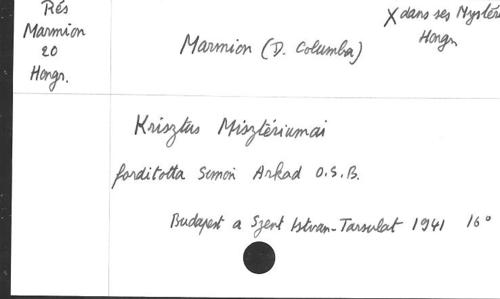 Rés
Marmion
20
Hongr.
Marmion (D. Columba)
X dans ses Mystè
Hongr
Krisztus Misztériumai
forditotta Simon Arkad O.S.B.
Budapest a Szent Istvan-Tarsulat 1941 16°